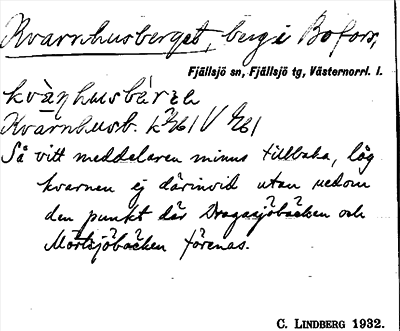 Kvarnhusberget, berg i Bofors,
Fjällsjö sn, Fjällsjö tg, Västernorrl. l.
Kvarnhusb.
Så vitt meddelaren minns tillbaka, låg
kvarnen ej därinvid utan nedom
den punkt där Dragasjöbäcken och
Mörtsjöbäcken förenas.
C. LINDBERG 1932.